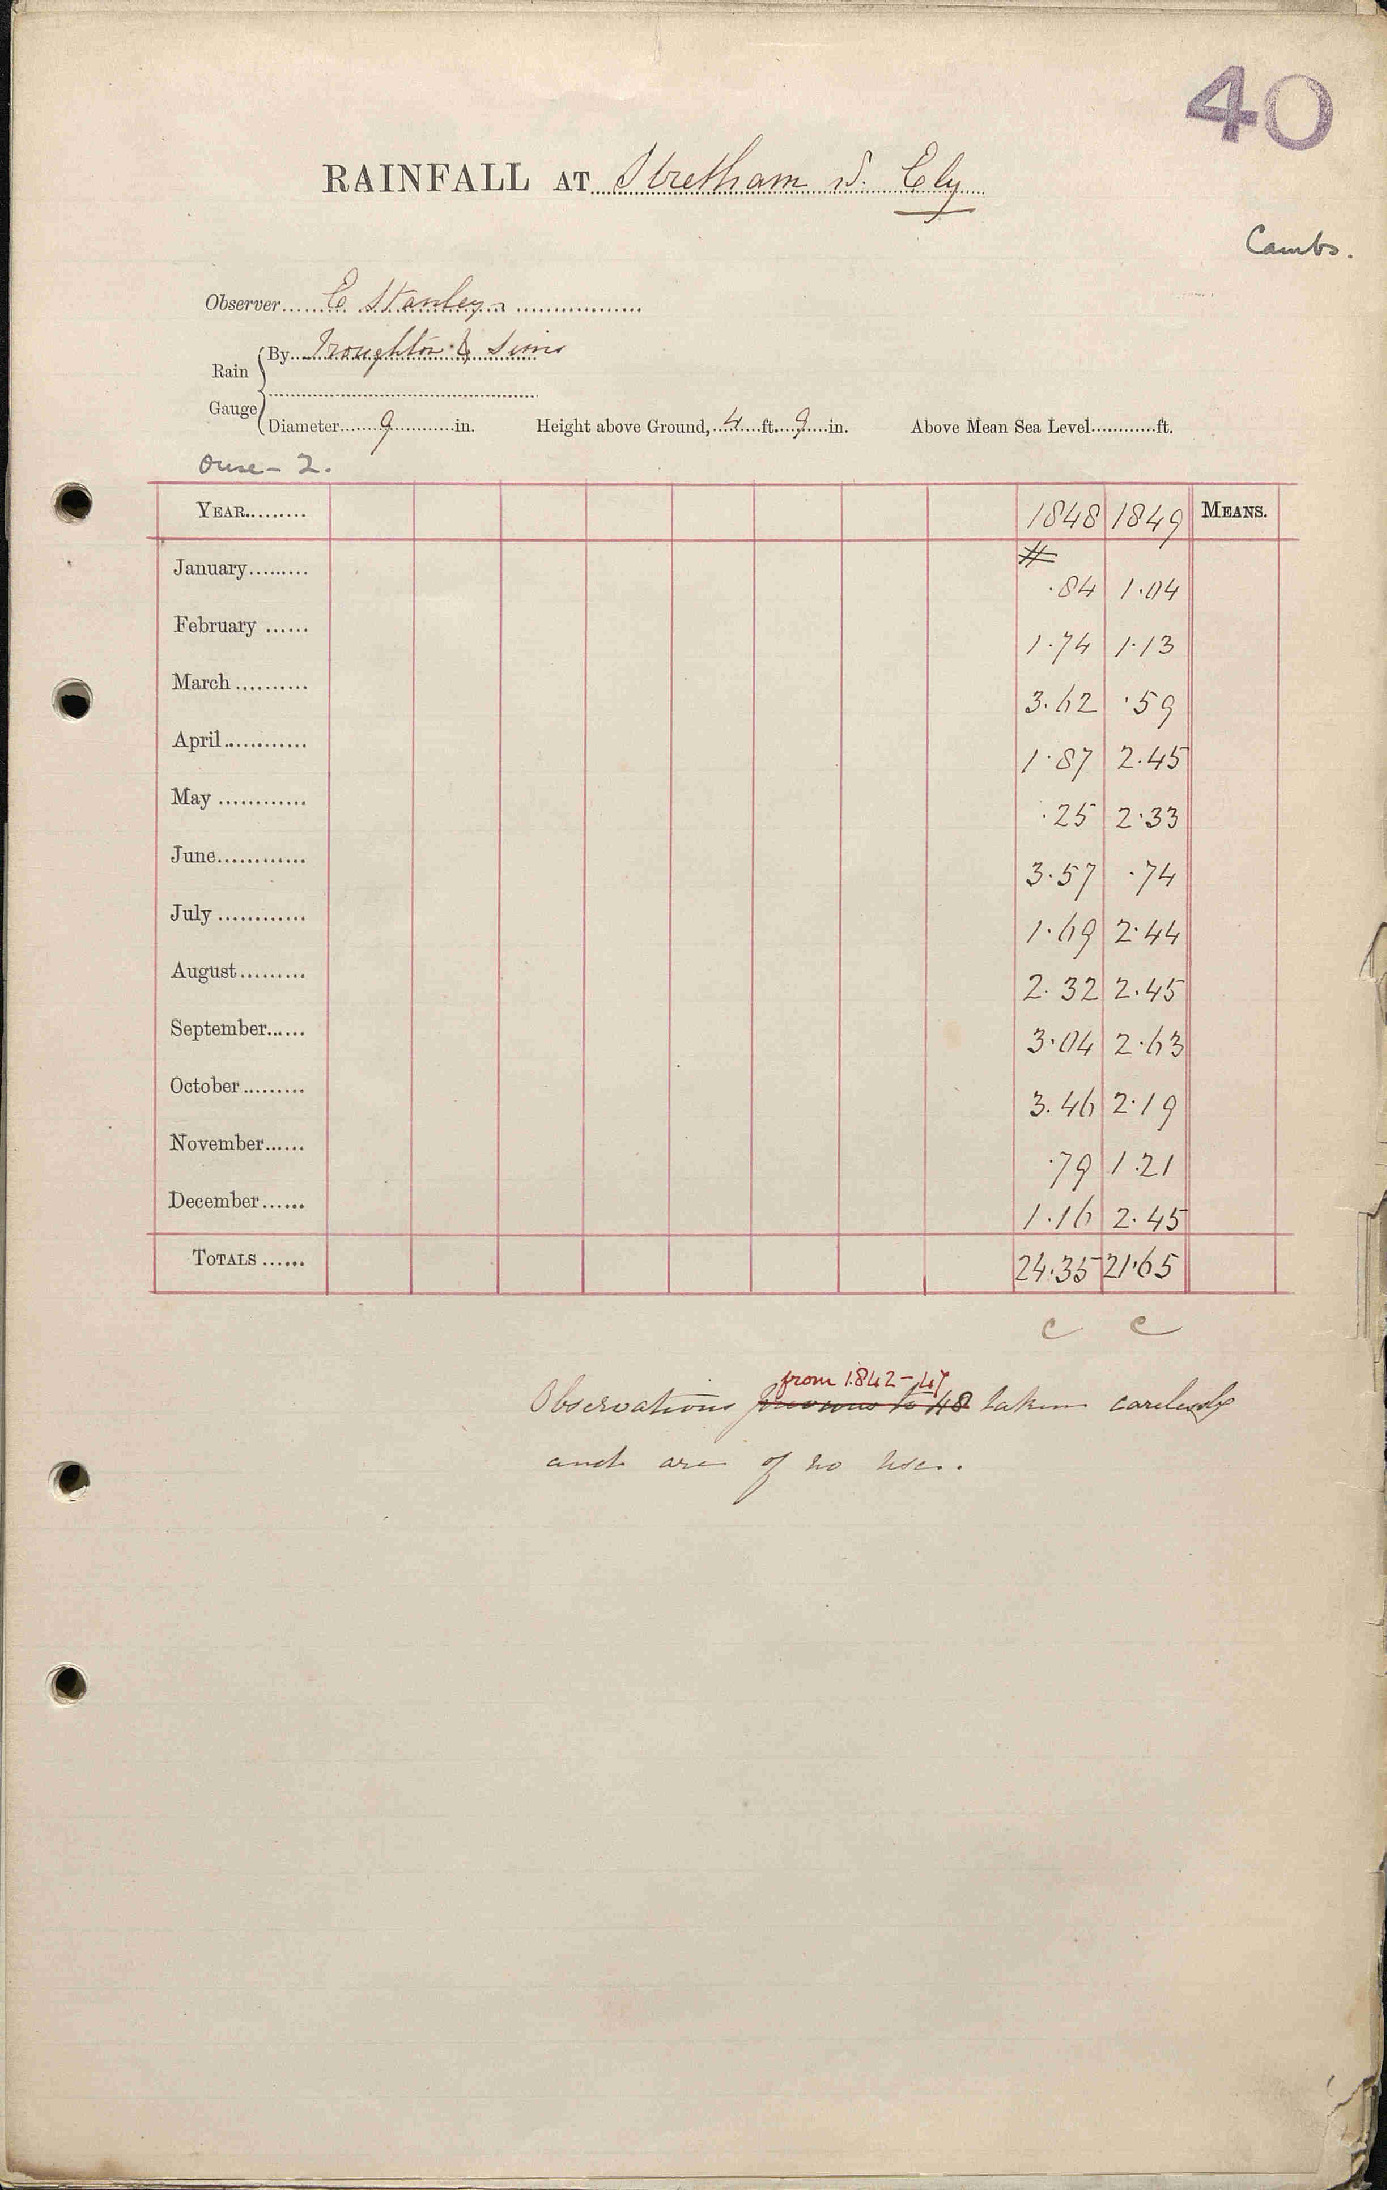 40
RAINFALL AT Stretham N. Ely
Cambs.
Observer E Stanley
Rain Gauge
By Troughton & Sims
Diameter 9 in. Height above Ground, 4 ft. 9 in. Above Mean Sea Level ft.
Ouse - 2.
YEAR 1848 1849 MEANS.
#
January .84 1.04
February 1.74 1.13
March 3.62 .59
April 1.87 2.45
May .25 2.33
June 3.57 .74
July 1.69 2.44
August 2.32 2.45
September 3.04 2.63
October 3.46 2.19
November .79 1.21
December 1.16 2.45
TOTALS 24.35 21.65
c c
from 1842-47
Observations previous to 48 taken carelessly
and are of no use.